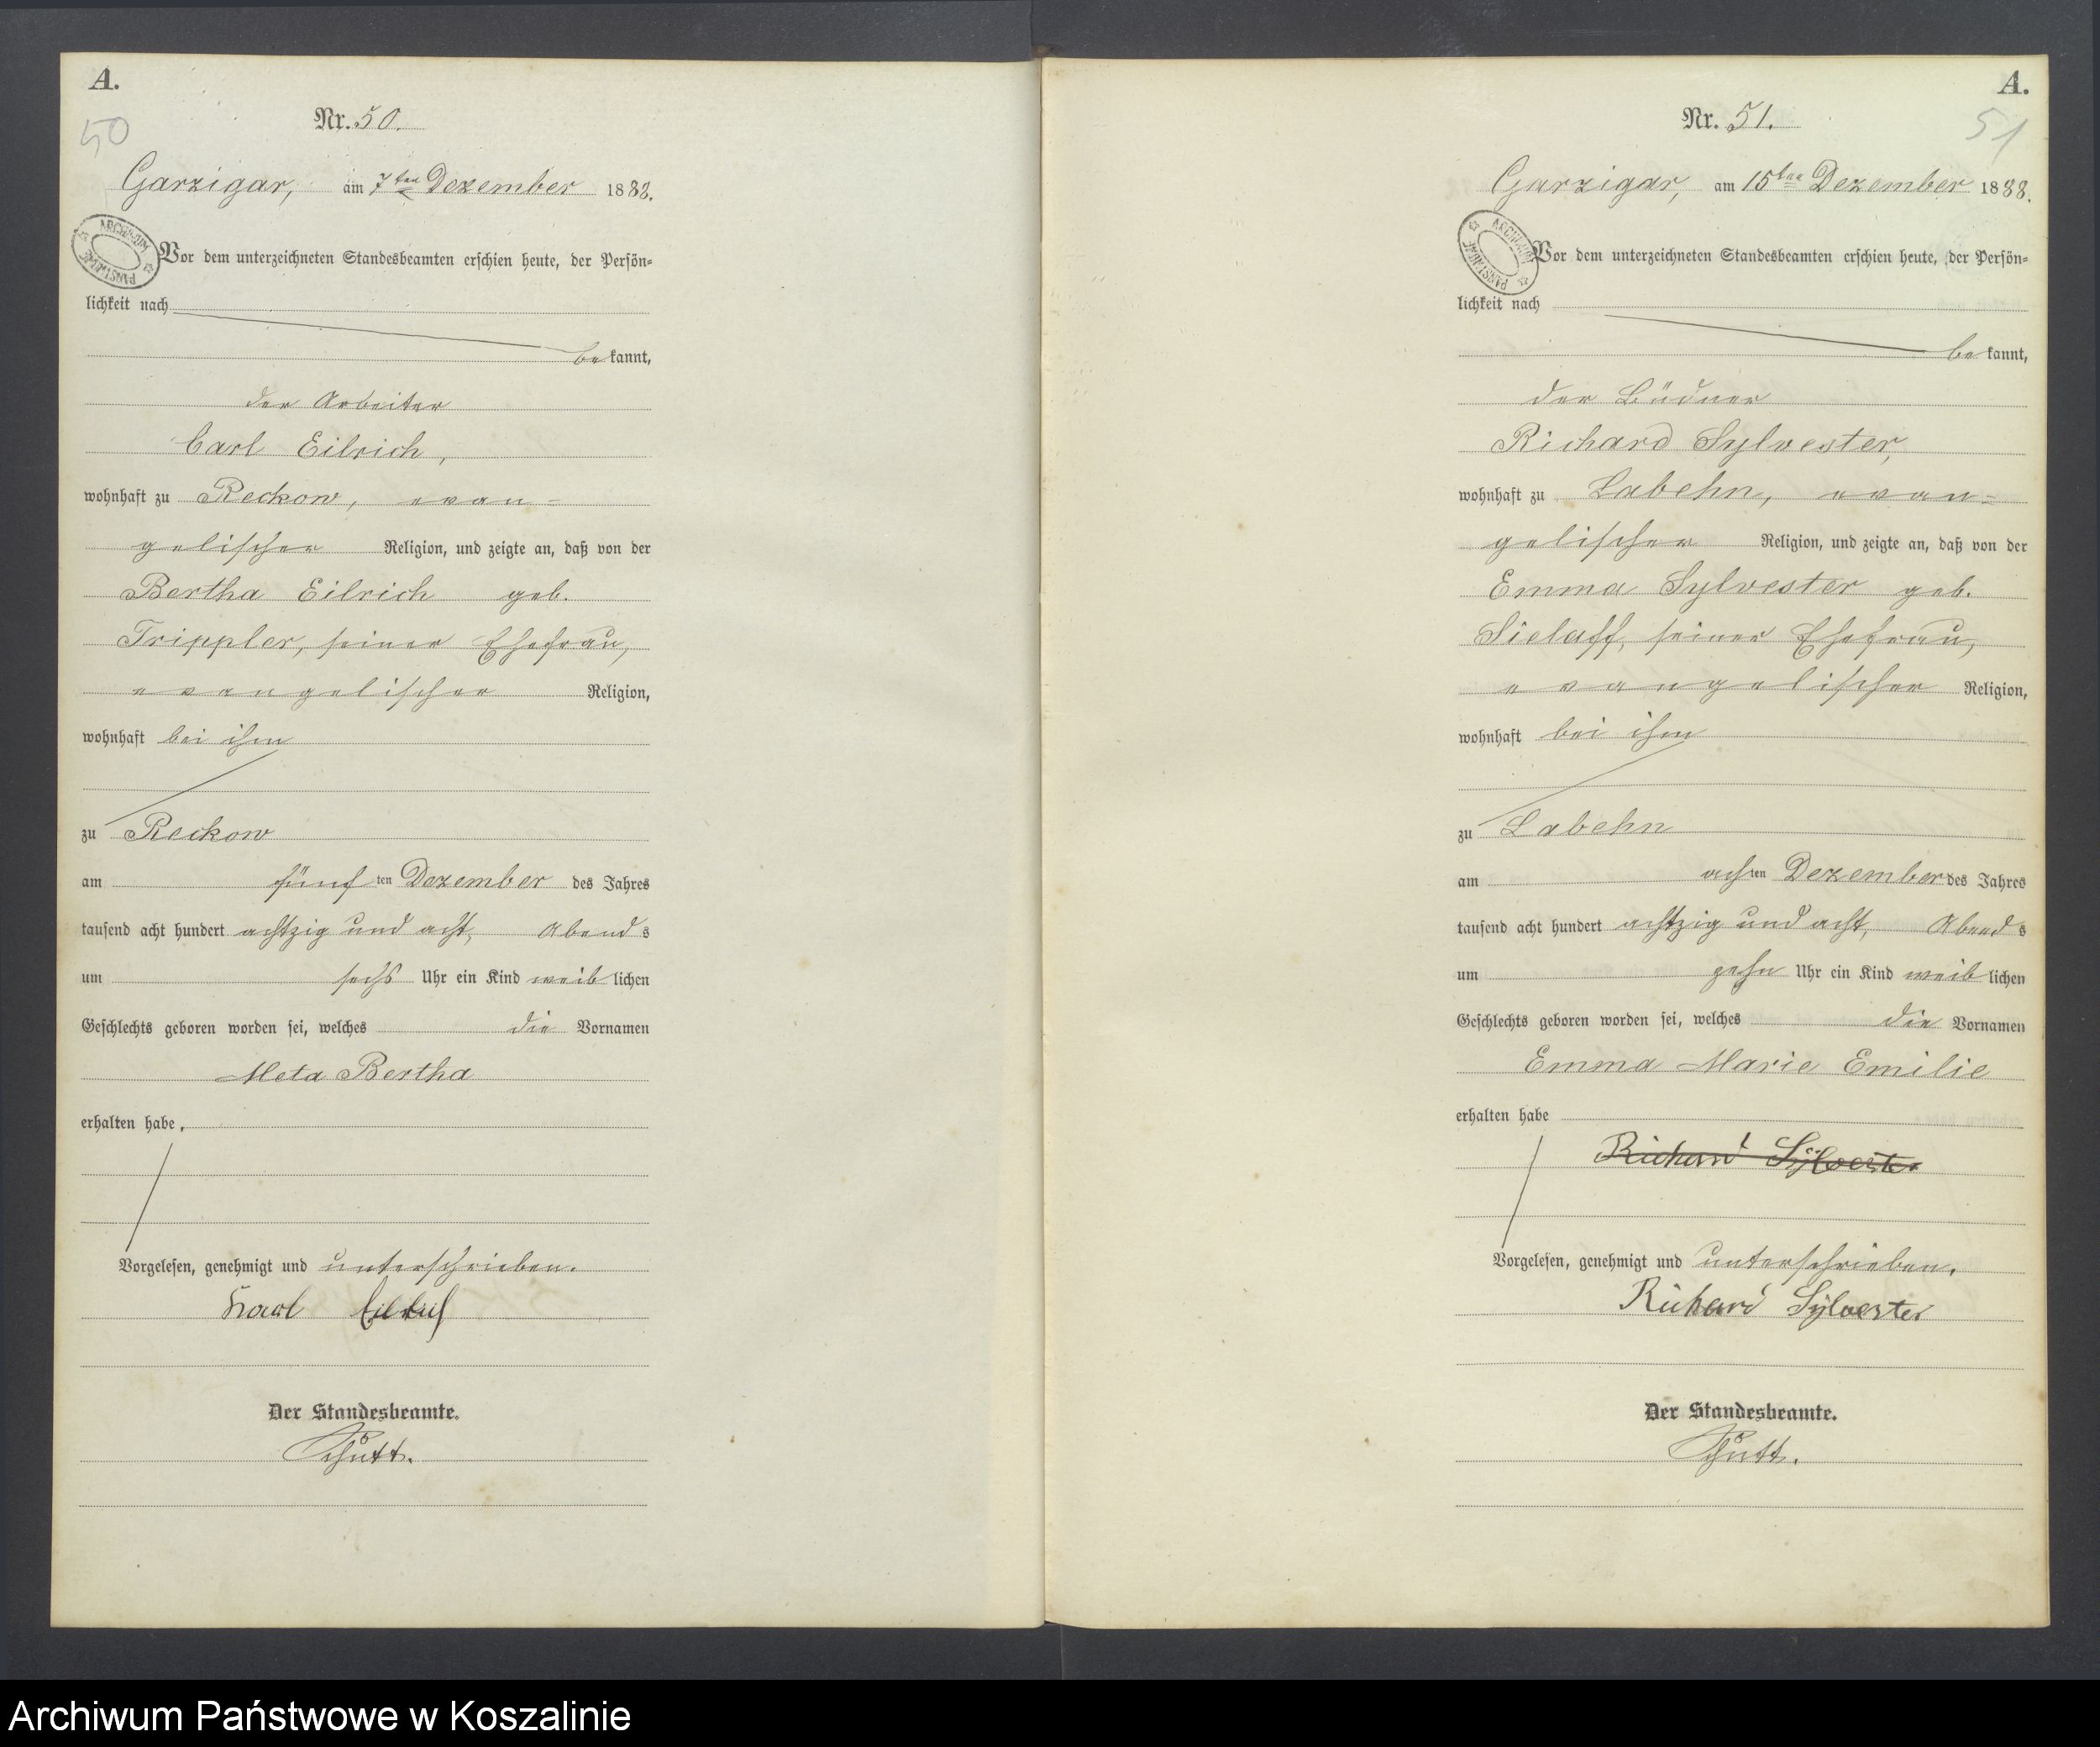 A.
50
Nr. 50.
Garzigar, am 7ten Dezember 1888.
ARCHIWUM PAŃSTWOWE
Vor dem unterzeichneten Standesbeamten erschien heute, der Persön=
lichkeit nach
bekannt,
der Arbeiter
Carl Eilrich,
wohnhaft zu Reckow, evan=
gelischer Religion, und zeigte an, daß von der
Bertha Eilrich geb.
Trippler, seiner Ehefrau,
evangelischer Religion,
wohnhaft bei ihm
zu Reckow
am fünften Dezember des Jahres
tausend acht hundert achtzig und acht, Abends
um sechs Uhr ein Kind weiblichen
Geschlechts geboren worden sei, welches die Vornamen
Meta Bertha
erhalten habe.
Vorgelesen, genehmigt und unterschrieben.
Karl Eilrich
Der Standesbeamte.
Schütt.
A.
51
Nr. 51.
Garzigar, am 15ten Dezember 1888.
ARCHIWUM PAŃSTWOWE
Vor dem unterzeichneten Standesbeamten erschien heute, der Persön=
lichkeit nach
bekannt,
der Büdner
Richard Sylvester,
wohnhaft zu Labehn, evan=
gelischer Religion, und zeigte an, daß von der
Emma Sylvester geb.
Sielaff, seiner Ehefrau,
evangelischer Religion,
wohnhaft bei ihm
zu Labehn
am achten Dezember des Jahres
tausend acht hundert achtzig und acht, Abends
um zehn Uhr ein Kind weiblichen
Geschlechts geboren worden sei, welches die Vornamen
Emma Marie Emilie
erhalten habe
Richard Sylvester
Vorgelesen, genehmigt und unterschrieben.
Richard Sylvester
Der Standesbeamte.
Schütt.
Archiwum Państwowe w Koszalinie